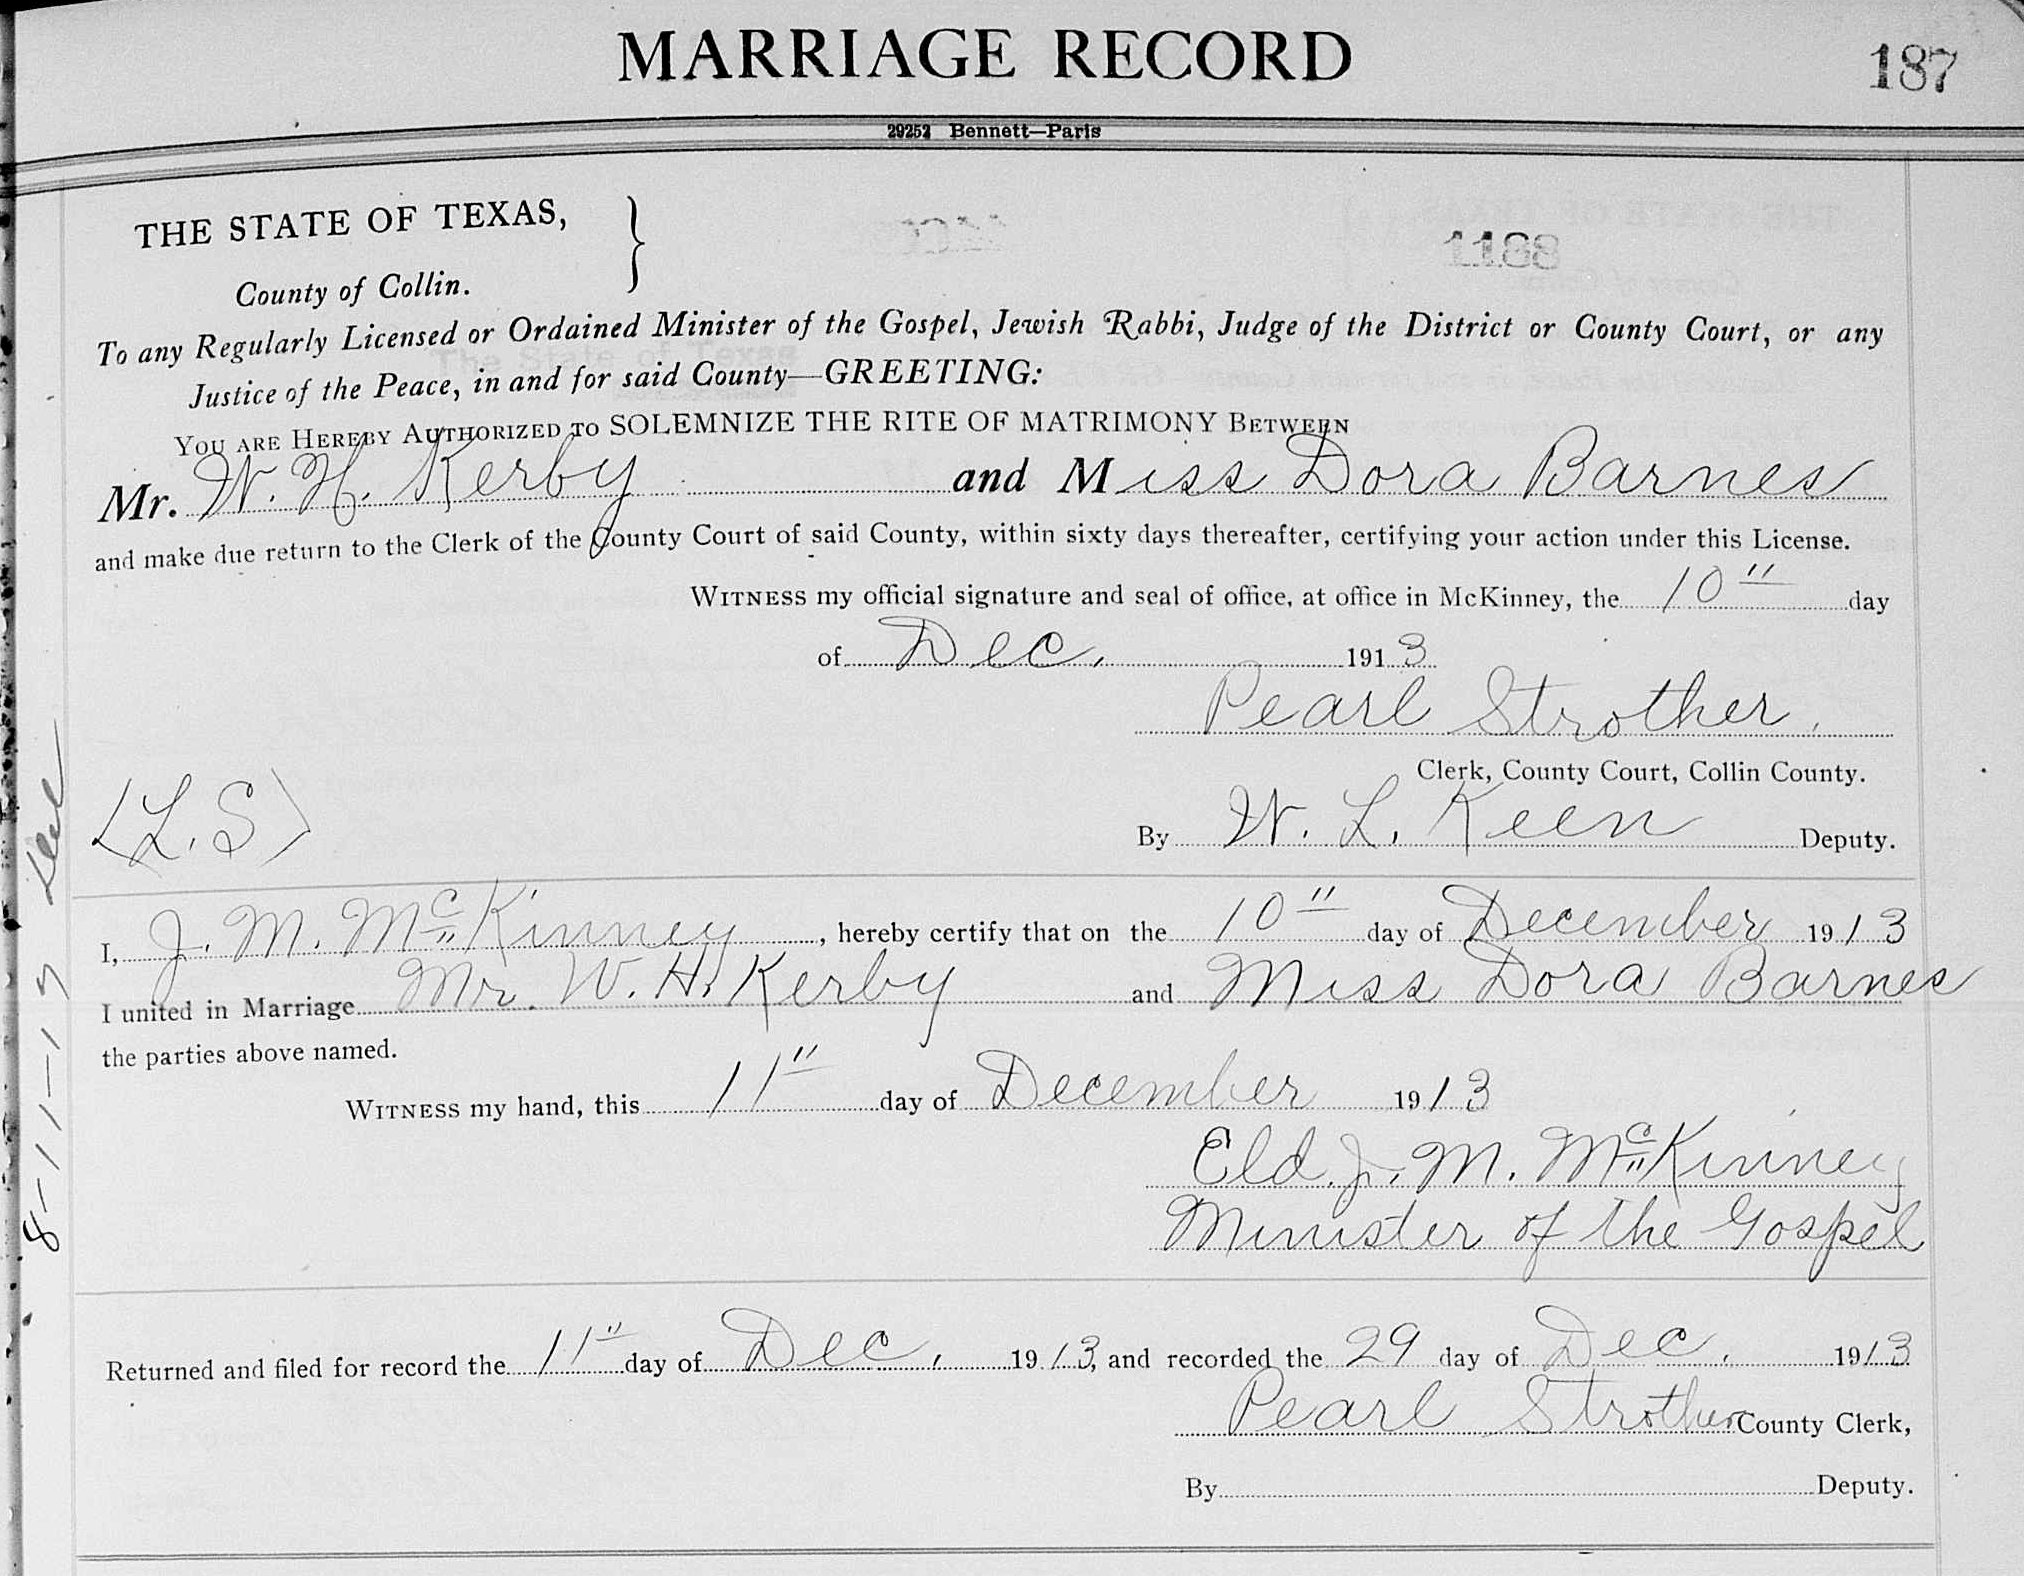 MARRIAGE RECORD
187
29252 Bennett—Paris
THE STATE OF TEXAS,
County of Collin.
1188
To any Regularly Licensed or Ordained Minister of the Gospel, Jewish Rabbi, Judge of the District or County Court, or any
Justice of the Peace, in and for said County—GREETING:
YOU ARE HEREBY AUTHORIZED TO SOLEMNIZE THE RITE OF MATRIMONY BETWEEN
Mr. W. H. Kerby and Miss Dora Barnes
and make due return to the Clerk of the County Court of said County, within sixty days thereafter, certifying your action under this License.
WITNESS my official signature and seal of office, at office in McKinney, the 10" day
of Dec. 1913
Pearl Strother.
Clerk, County Court, Collin County.
(L.S)
By W. L. Keen Deputy.
I, J. M. McKinney, hereby certify that on the 10" day of December 1913
I united in Marriage Mr. W. H. Kerby and Miss Dora Barnes
the parties above named.
WITNESS my hand, this 11" day of December 1913
Eld. J. M. McKinney
Minister of the Gospel
Returned and filed for record the 11" day of Dec. 1913, and recorded the 29 day of Dec. 1913
Pearl Strother County Clerk,
By Deputy.
8-11-19